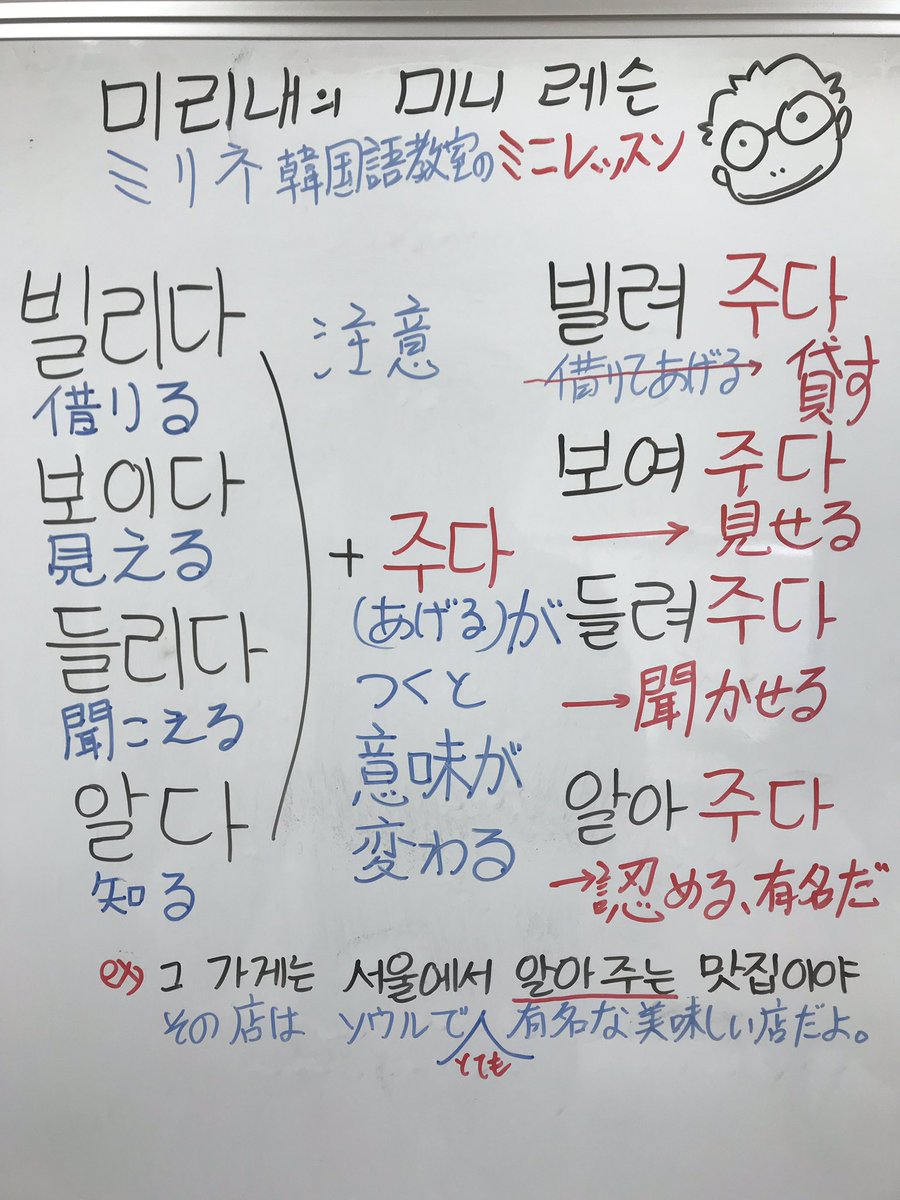 미리내의 미니 레슨
ミリネ韓国語教室のミニレッスン
빌리다
借りる
보이다
見える
들리다
聞こえる
알다
知る
注意
+ 주다
(あげる)が
つくと
意味が
変わる
빌려 주다
借りてあげる 貸す
보여 주다
→ 見せる
들려 주다
→ 聞かせる
알아 주다
→ 認める、有名だ
ex) 그 가게는 서울에서 알아주는 맛집이야
その店は ソウルで 有名な美味しい店だよ。
とても